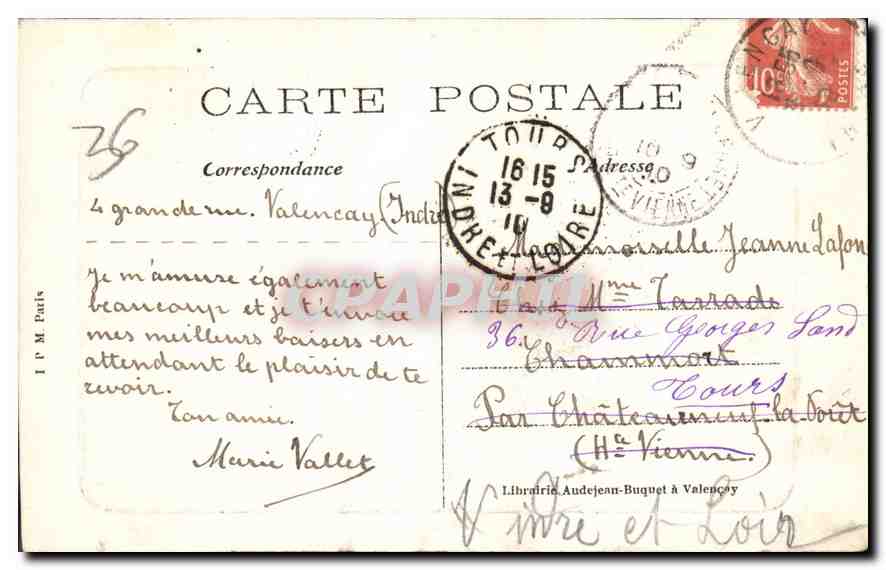 CARTE POSTALE
36
Correspondance
Adresse
4 grande rue. Valencay (Indre
Je m'amuse également
beaucoup et je t'envoie
mes meilleurs baisers en
attendant le plaisir de te
revoir.
Ton amie.
Marie Vallet
TOURS
16 15
13 - 8
10
INDRE ET LOIRE
10 9
10
VIENNE
10
POSTES
Mademoiselle Jeanne Lafon
Chez Mme Tarrade
36. Rue Georges Sand
Chammort
Tours
Par Châteauneuf la Forêt
(Hte Vienne.)
Librairie Audejean-Buquet à Valençay
indre et Loir
I P M Paris
CPAPHIL